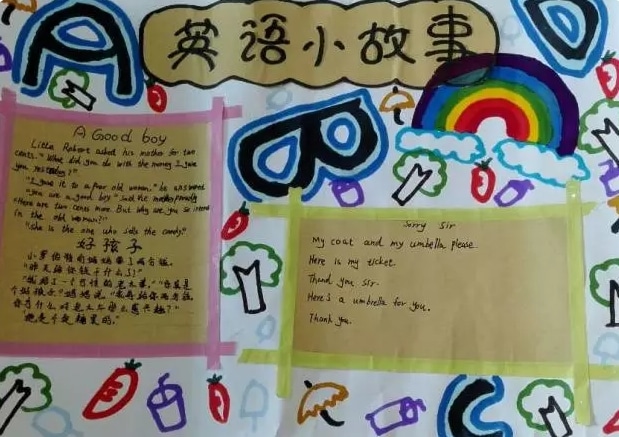 英语小故事
A
B
C
D
A Good boy
Little Robert asked his mother for two
cents. "What did you do with the money I gave
you yesterday?"
"I gave it to a poor old woman," he answered
"you are a good boy" said the mother proudly
"Here are two cents more. But why are you so
in the old woman?"
"She is the one who sells the candy."
好孩子
小罗伯特向妈妈要了两分钱。
"昨天给你钱干什么了？"
"我给了一个可怜的老太婆。""你真是
个好孩子"妈妈说。"再给你两分钱
你为什么对老太太那么感兴趣？"
"她是个卖糖果的。"
Sorry Sir
My coat and my umbella please.
Here is my ticket.
Thand you sir.
Here's a umbrella for you.
Thank you.